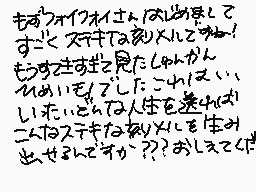 もずフォイフォイさん はじめまして
すごくステキな刻リメルですね!
もうすごすぎて見たしゅんかん
ひめいモノでしたこれはいい
いったいどんな人生を送れば
こんなステキな刻リメルを生み
出せるんですか???おしえてくだ